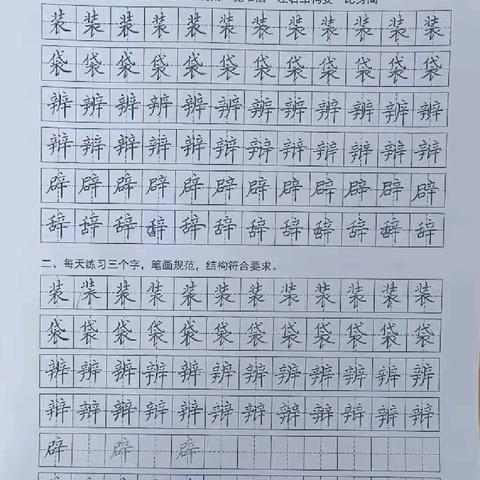 装装装装装装装装装装装装
袋袋袋袋袋袋袋袋袋袋袋袋
辨辨辨辨辨辨辨辨辨辨辨辨
辩辩辩辩辩辩辩辩辩辩辩辩
辟辟辟辟辟辟辟辟辟辟辟辟
辞辞辞辞辞辞辞辞辞辞辞辞
二、每天练习三个字，笔画规范，结构符合要求。
装装装装装装装装装装装装
袋袋袋袋袋袋袋袋袋袋袋袋
辨辨辨辨辨辨辨辨辨辨辨辨
辩辩辩辩辩辩辩辩辩辩辩辩
辟 辟 辟